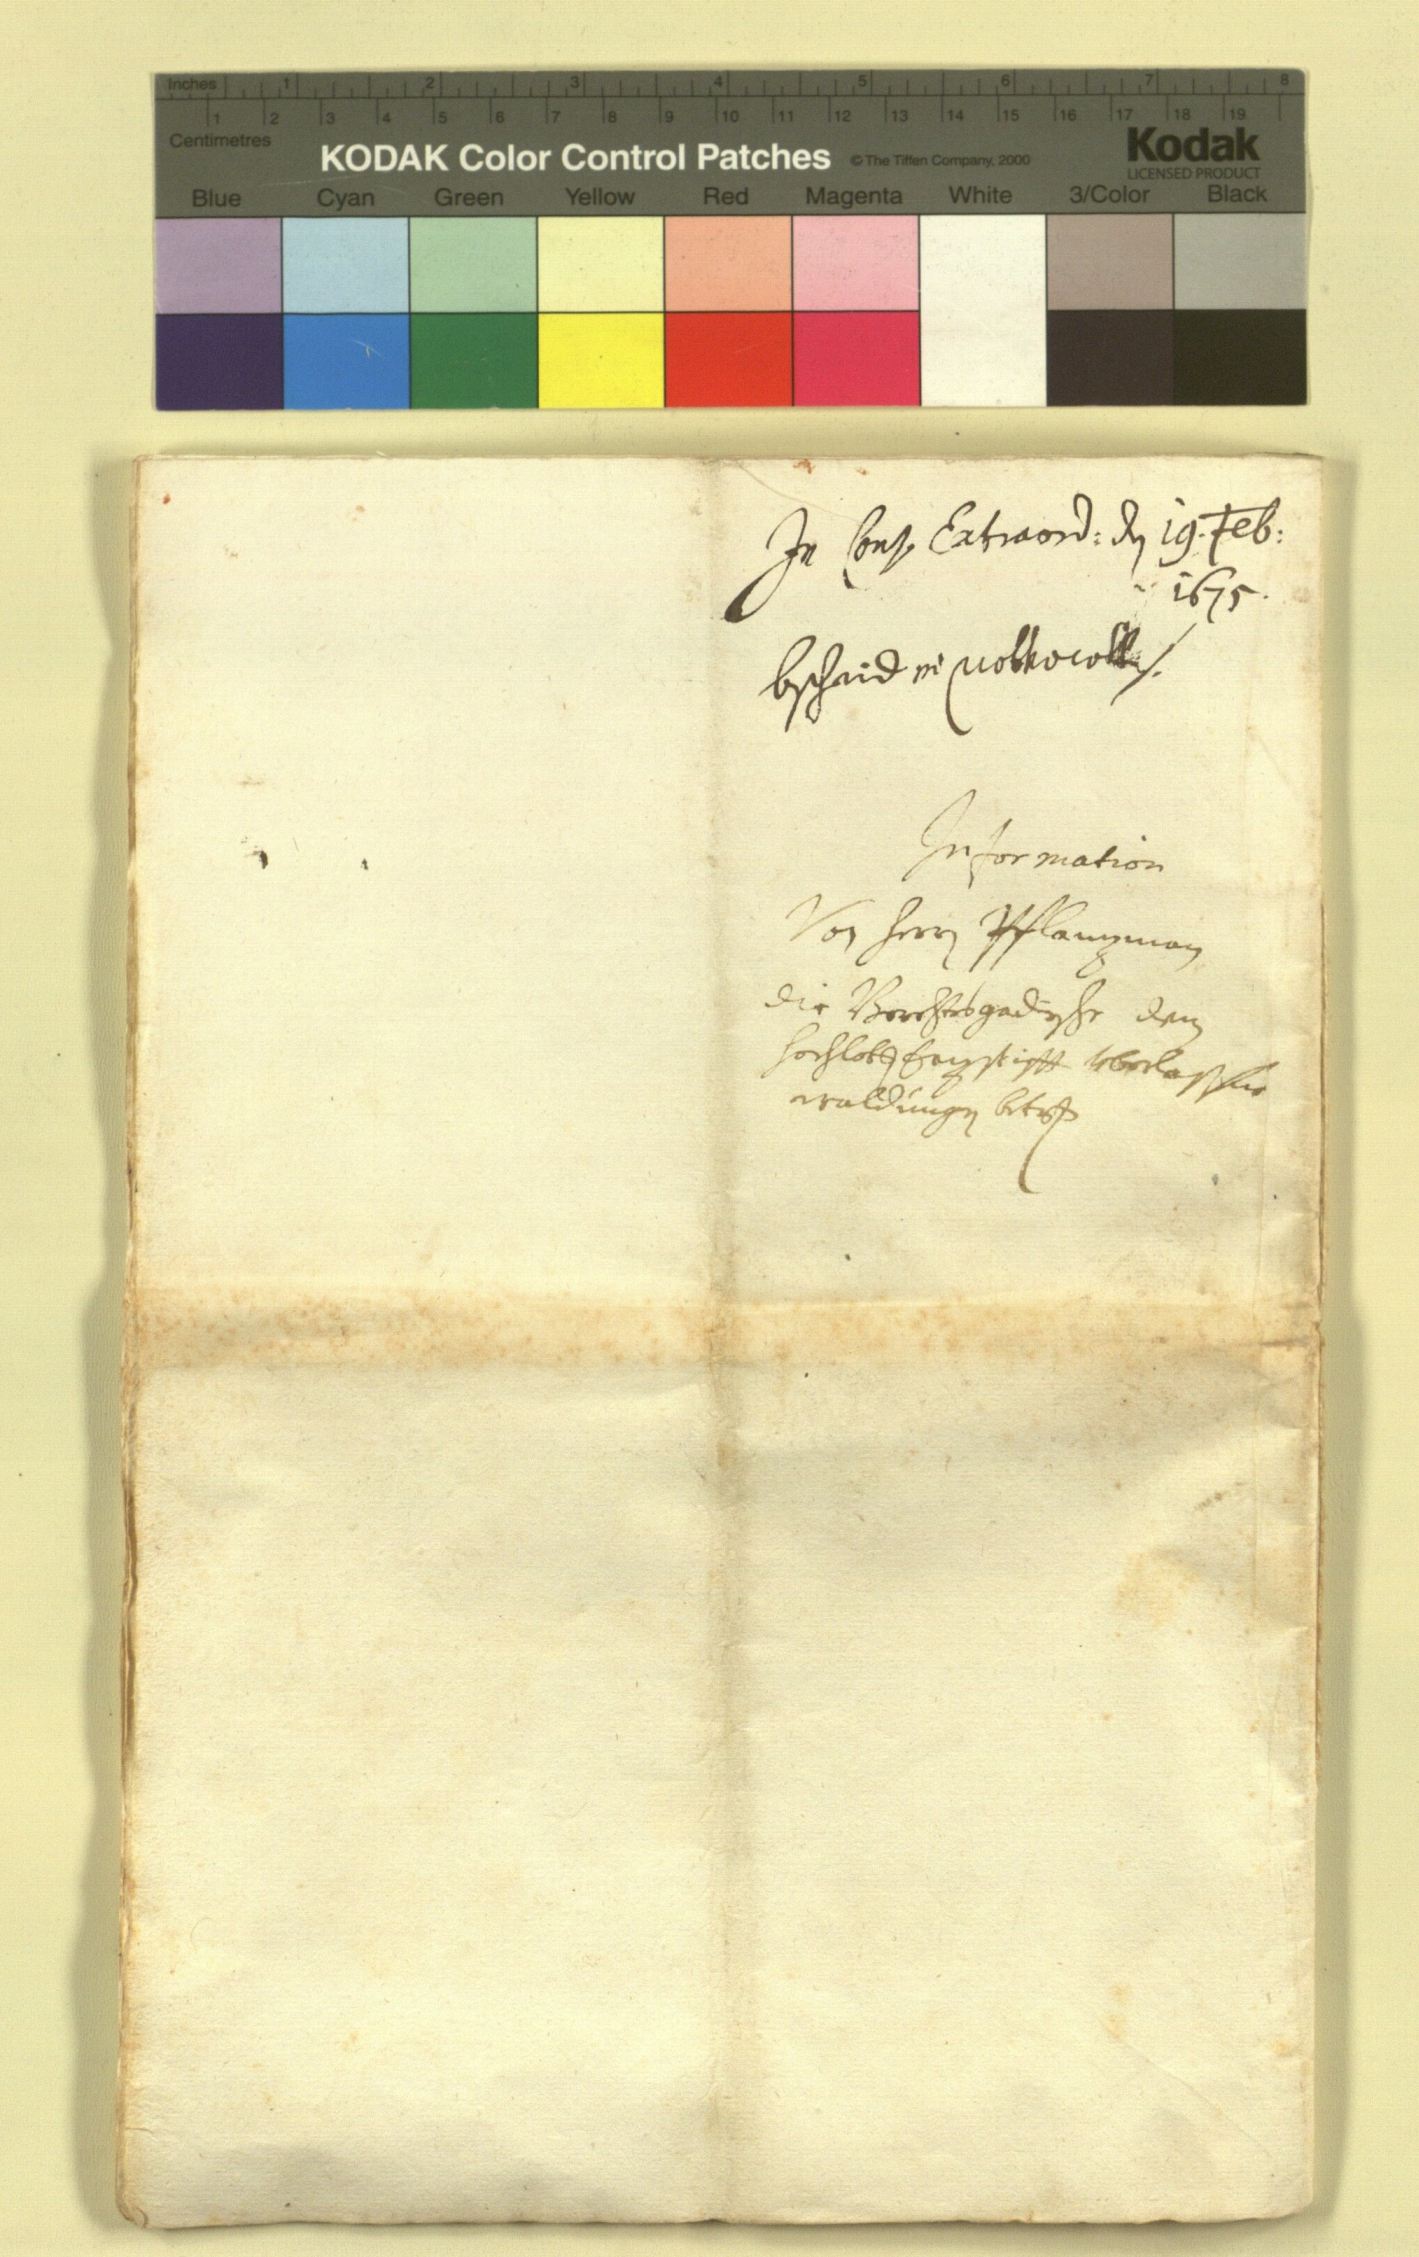 Inches 1 2 3 4 5 6 7 8
1 2 3 4 5 6 7 8 9 10 11 12 13 14 15 16 17 18 19
Centimetres
KODAK Color Control Patches © The Tiffen Company, 2000 Kodak
LICENSED PRODUCT
Blue Cyan Green Yellow Red Magenta White 3/Color Black
In Cons. Extraord: den 19. Feb:
1675.
bschaid in
Information
Von Herrn Pflanzman
die Berchtesgadische dem
hochlobl Erzstifft überlassene
waldungen betr